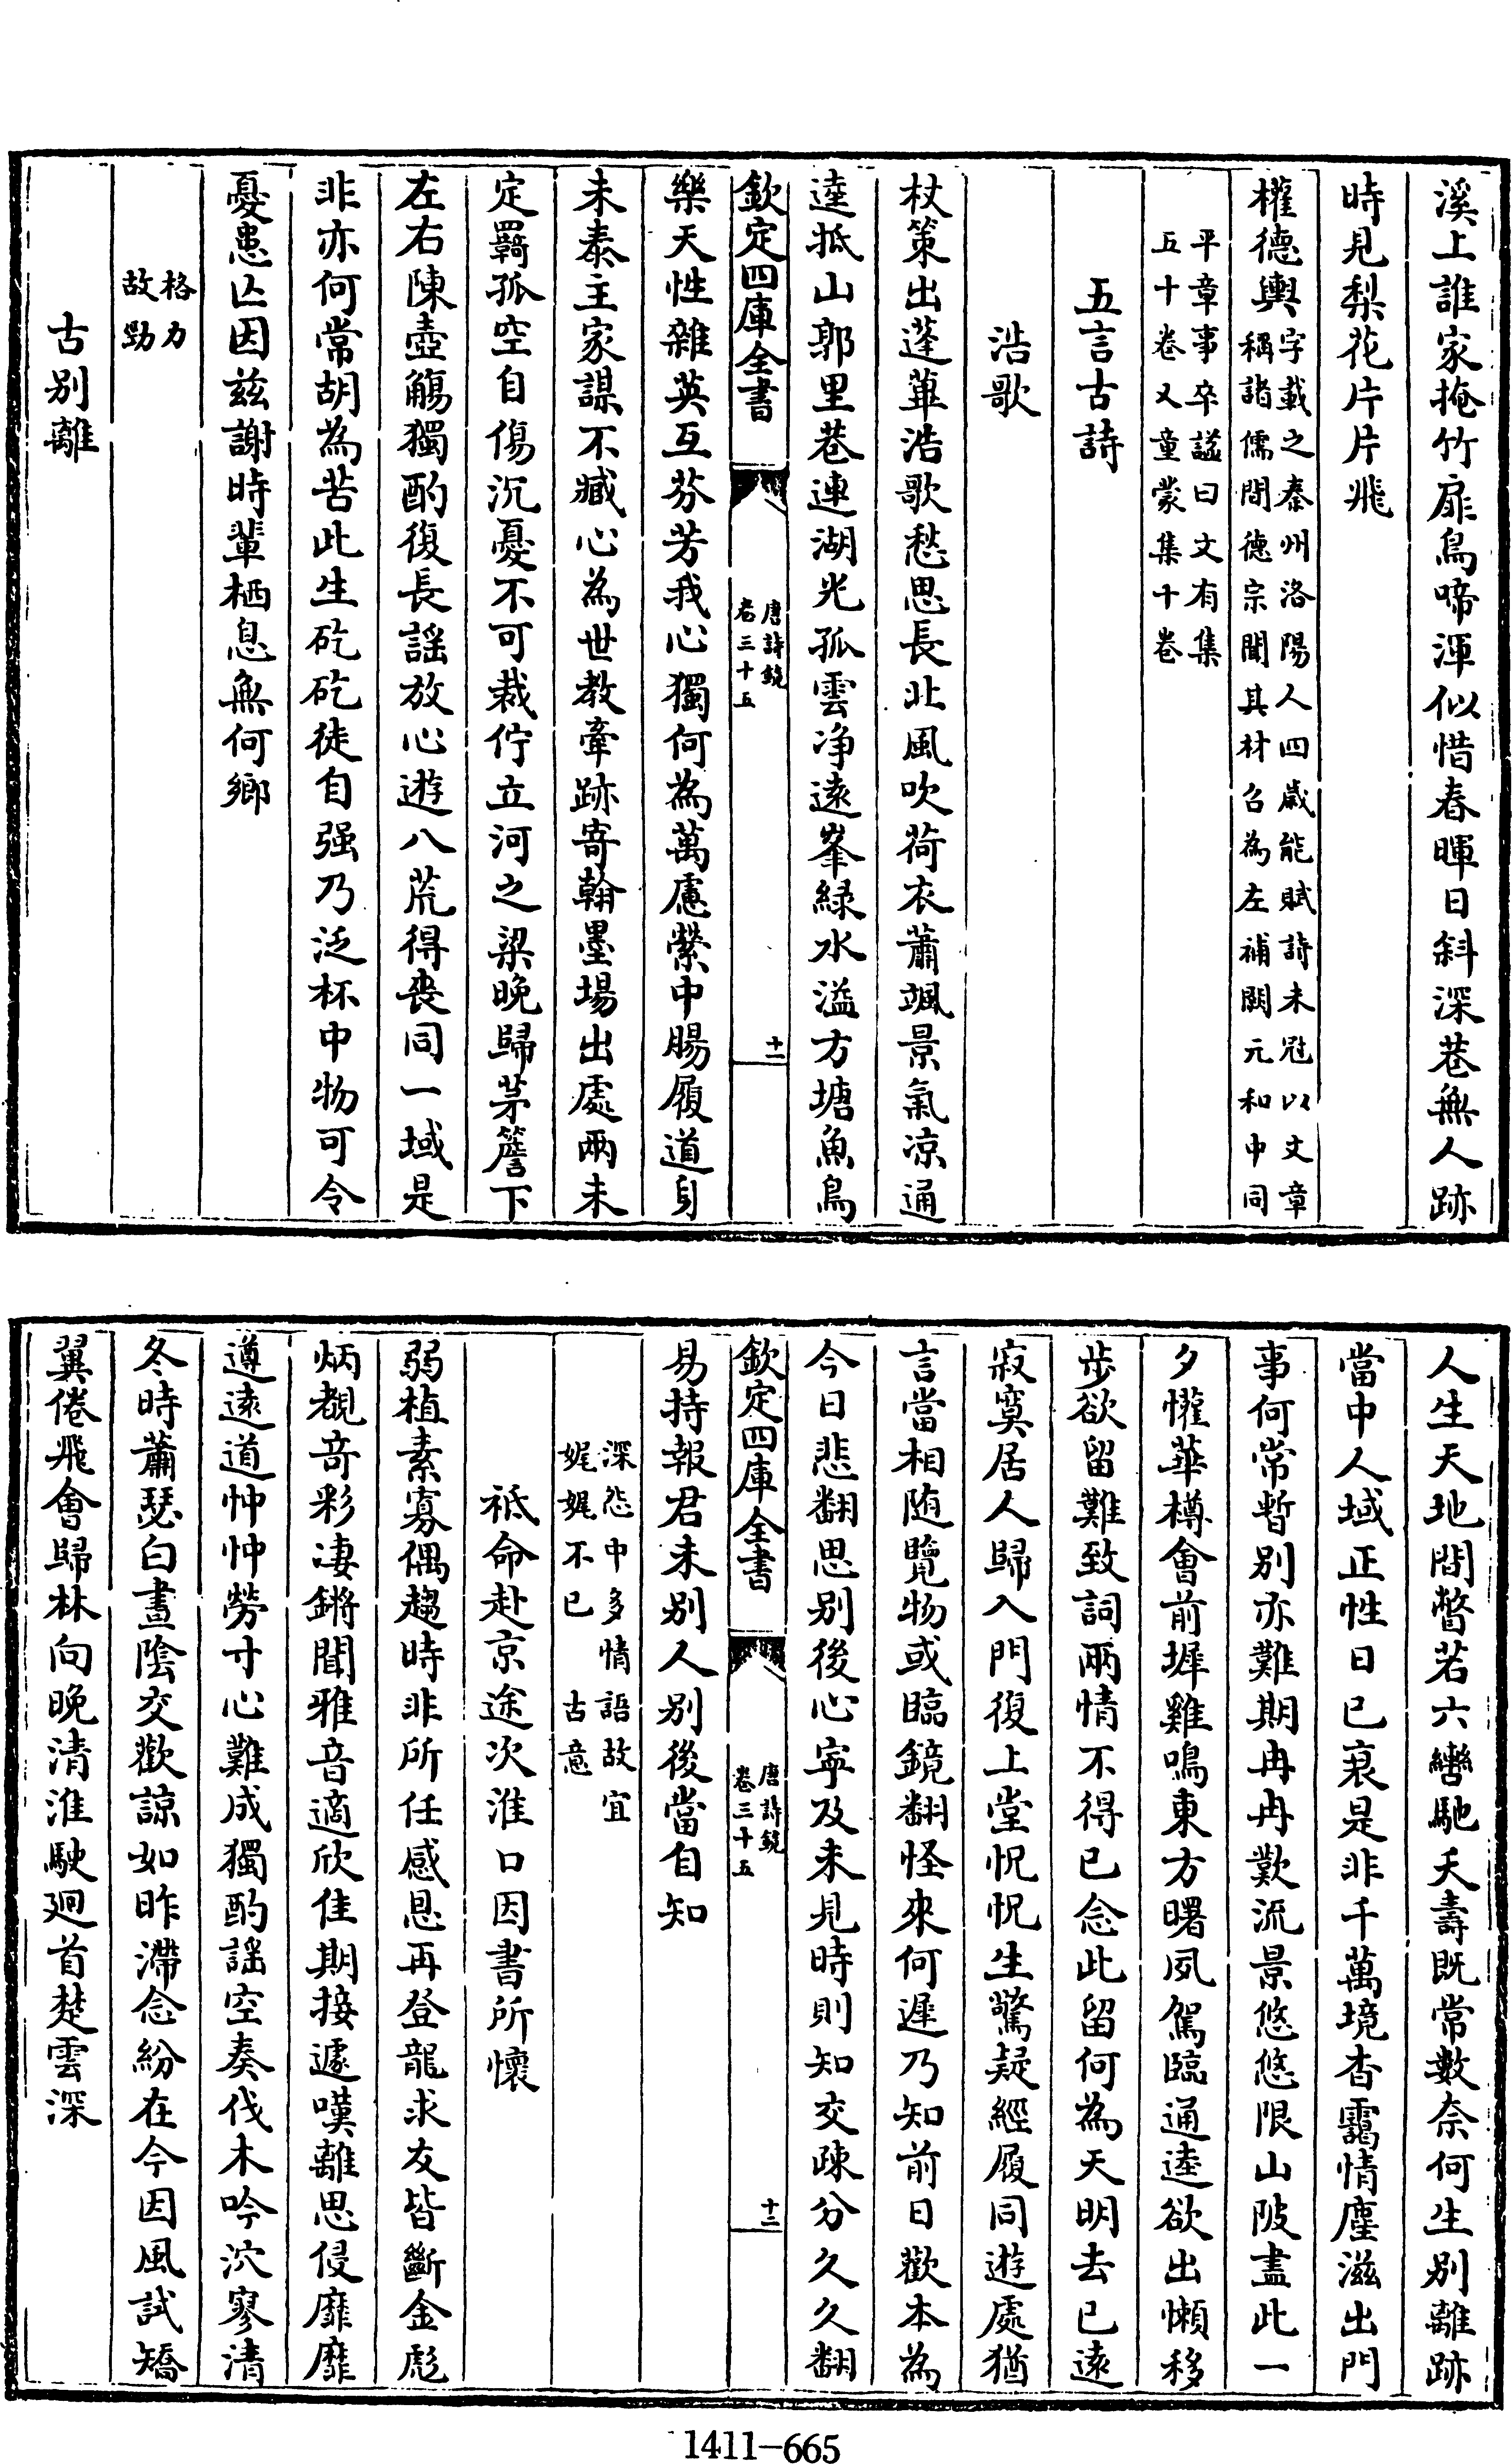 溪上誰家掩竹扉鳥啼渾似惜春暉日斜深巷無人跡
時見梨花片片飛
權德輿字載之秦州洛陽人四歲能賦詩未冠以文章
稱諸儒間德宗聞其材召為左補闕元和中同
平章事卒諡曰文有集
五十卷又童蒙集十卷
五言古詩
浩歌
杖策出蓬蓽浩歌愁思長北風吹荷衣蕭颯景氣凉通
逵抵山郭里巷連湖光孤雲净遠峯緑水溢方塘魚鳥
欽定四庫全書
唐詩鏡
卷三十五
十一
樂天性雜英互芬芳我心獨何為萬慮縈中腸履道身
未泰主家謀不臧心為世教牽跡寄翰墨場出處兩未
定羇孤空自傷沉憂不可裁佇立河之梁晚歸茅簷下
左右陳壺觴獨酌復長謡放心遊八荒得喪同一域是
非亦何常胡為苦此生矻矻徒自强乃泛杯中物可令
憂患亾因兹謝時輩栖息無何鄉
格力
故勁
古别離
人生天地間瞥若六轡馳夭壽既常數奈何生别離跡
當中人域正性日已衰是非千萬境杳靄情塵滋出門
事何常暫别亦難期冉冉歎流景悠悠限山陂盡此一
夕懽華樽會前墀雞鳴東方曙夙駕臨通逵欲出懶移
步欲留難致詞兩情不得已念此留何為天明去已遠
寂寞居人歸入門復上堂怳怳生驚疑經履同遊處猶
言當相随覽物或臨鏡翻怪來何遲乃知前日歡本為
今日悲翻思别後心寧及未見時則知交疎分久久翻
欽定四庫全書
唐詩鏡
卷三十五
十二
易持報君未别人别後當自知
深怨中多情語故宜
娓娓不已　古意
祗命赴京途次淮口因書所懷
弱植素寡偶趨時非所任感恩再登龍求友皆斷金彪
炳覩奇彩凄鏘聞雅音適欣佳期接遽嘆離思侵靡靡
遵遠道忡忡勞寸心難成獨酌謡空奏伐木吟泬寥清
冬時蕭瑟白晝陰交歡諒如昨滯念紛在今因風試矯
翼倦飛會歸林向晚清淮駛廻首楚雲深
1411-665